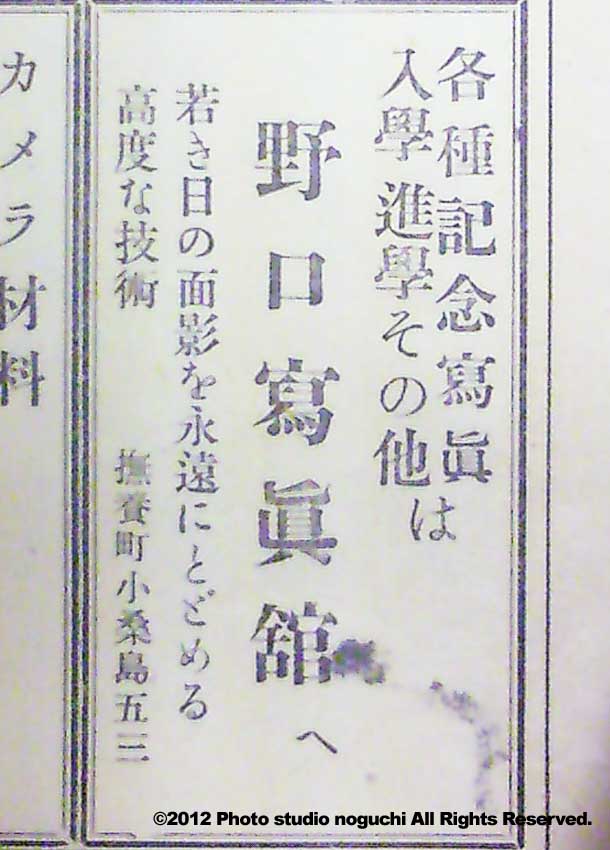 各種記念寫眞は
入學進學その他
野口寫眞舘へ
若き日の面影を永遠にとどめる
高度な技術
撫養町小桑島五三
カメラ材料
©2012 Photo studio noguchi All Rights Reserved.